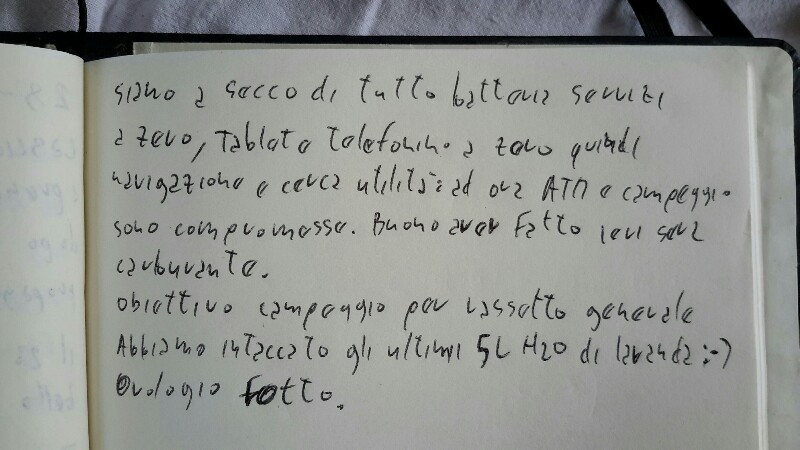 siamo a secco di tutto batteria servizi
a zero, tablet e telefonino a zero quindi
navigazione e cerca utilità ad ora ATM e campeggio
sono compromesse. Buono aver fatto ieri sera
carburante.
obiettivo campeggio per rassetto generale
Abbiamo intaccato gli ultimi 5L H2O di lavanda :-)
Orologio rotto.